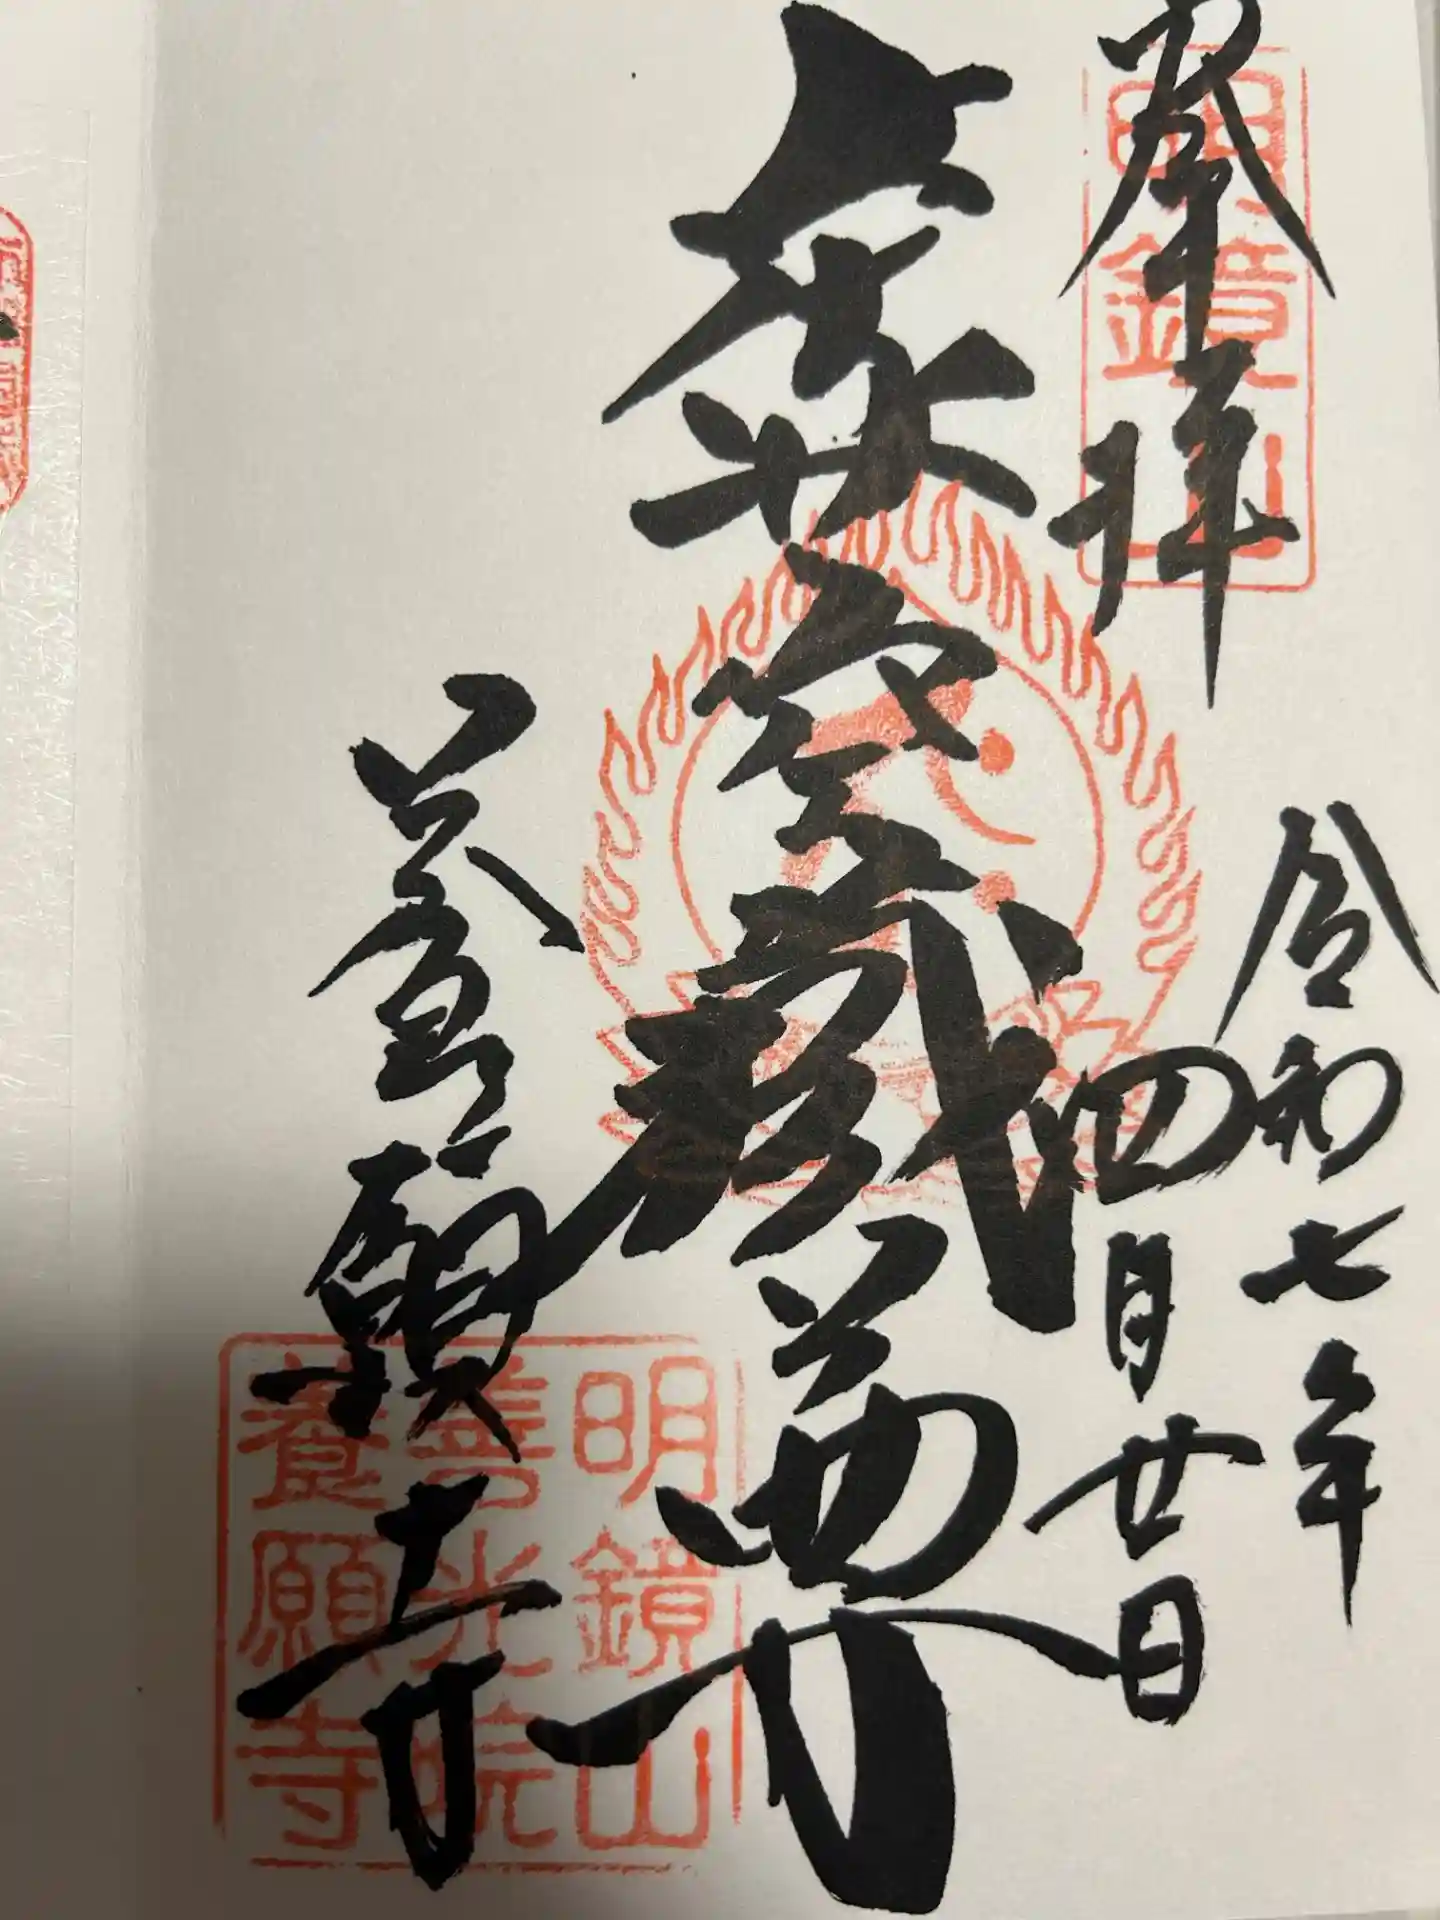 明鏡山
奉拝
令和七年
四月廿日
虚空蔵尊
養願寺
明鏡山
善光院
養願寺